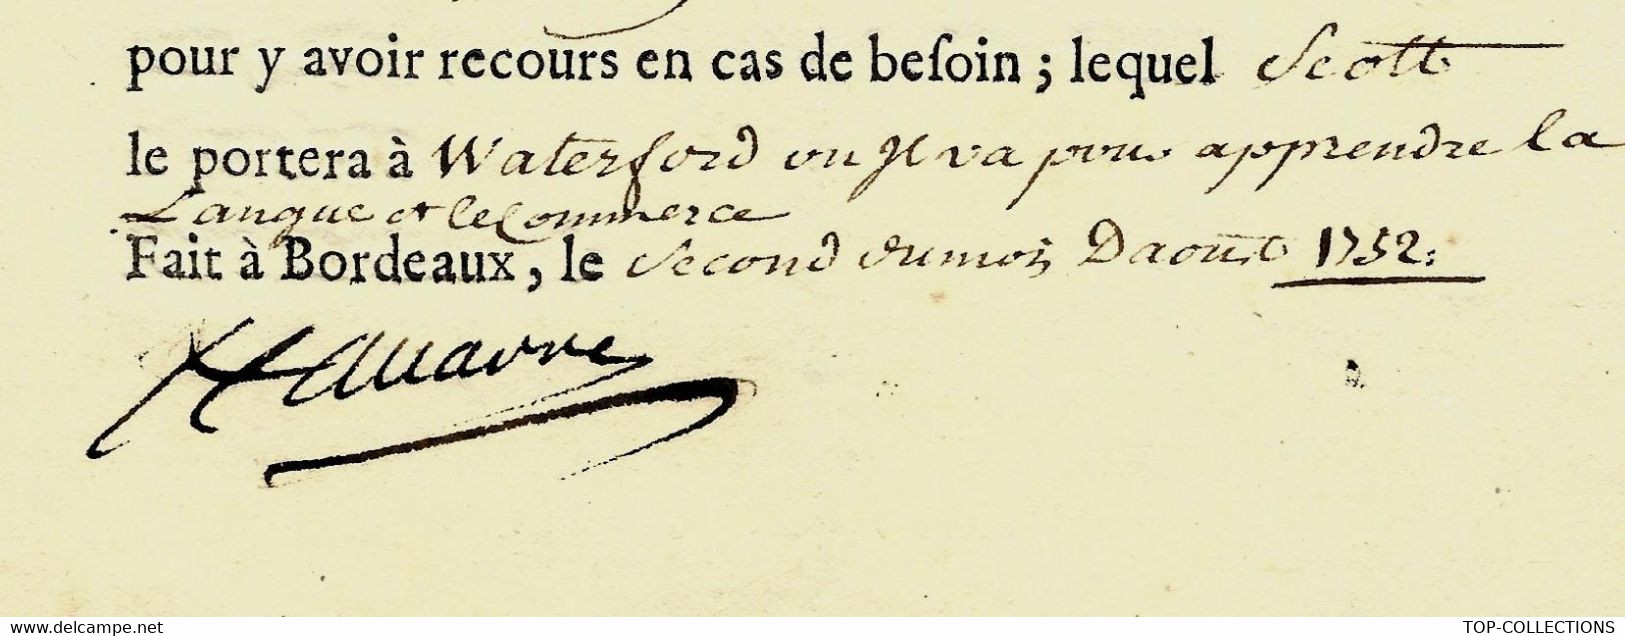 pour y avoir recours en cas de beſoin ; lequel Scott
le portera à Waterford ou Il va pour apprendre la
Langue et le Commerce
Fait à Bordeaux, le Second du mois Daoust 1752:
www.delcampe.net
TOP-COLLECTIONS